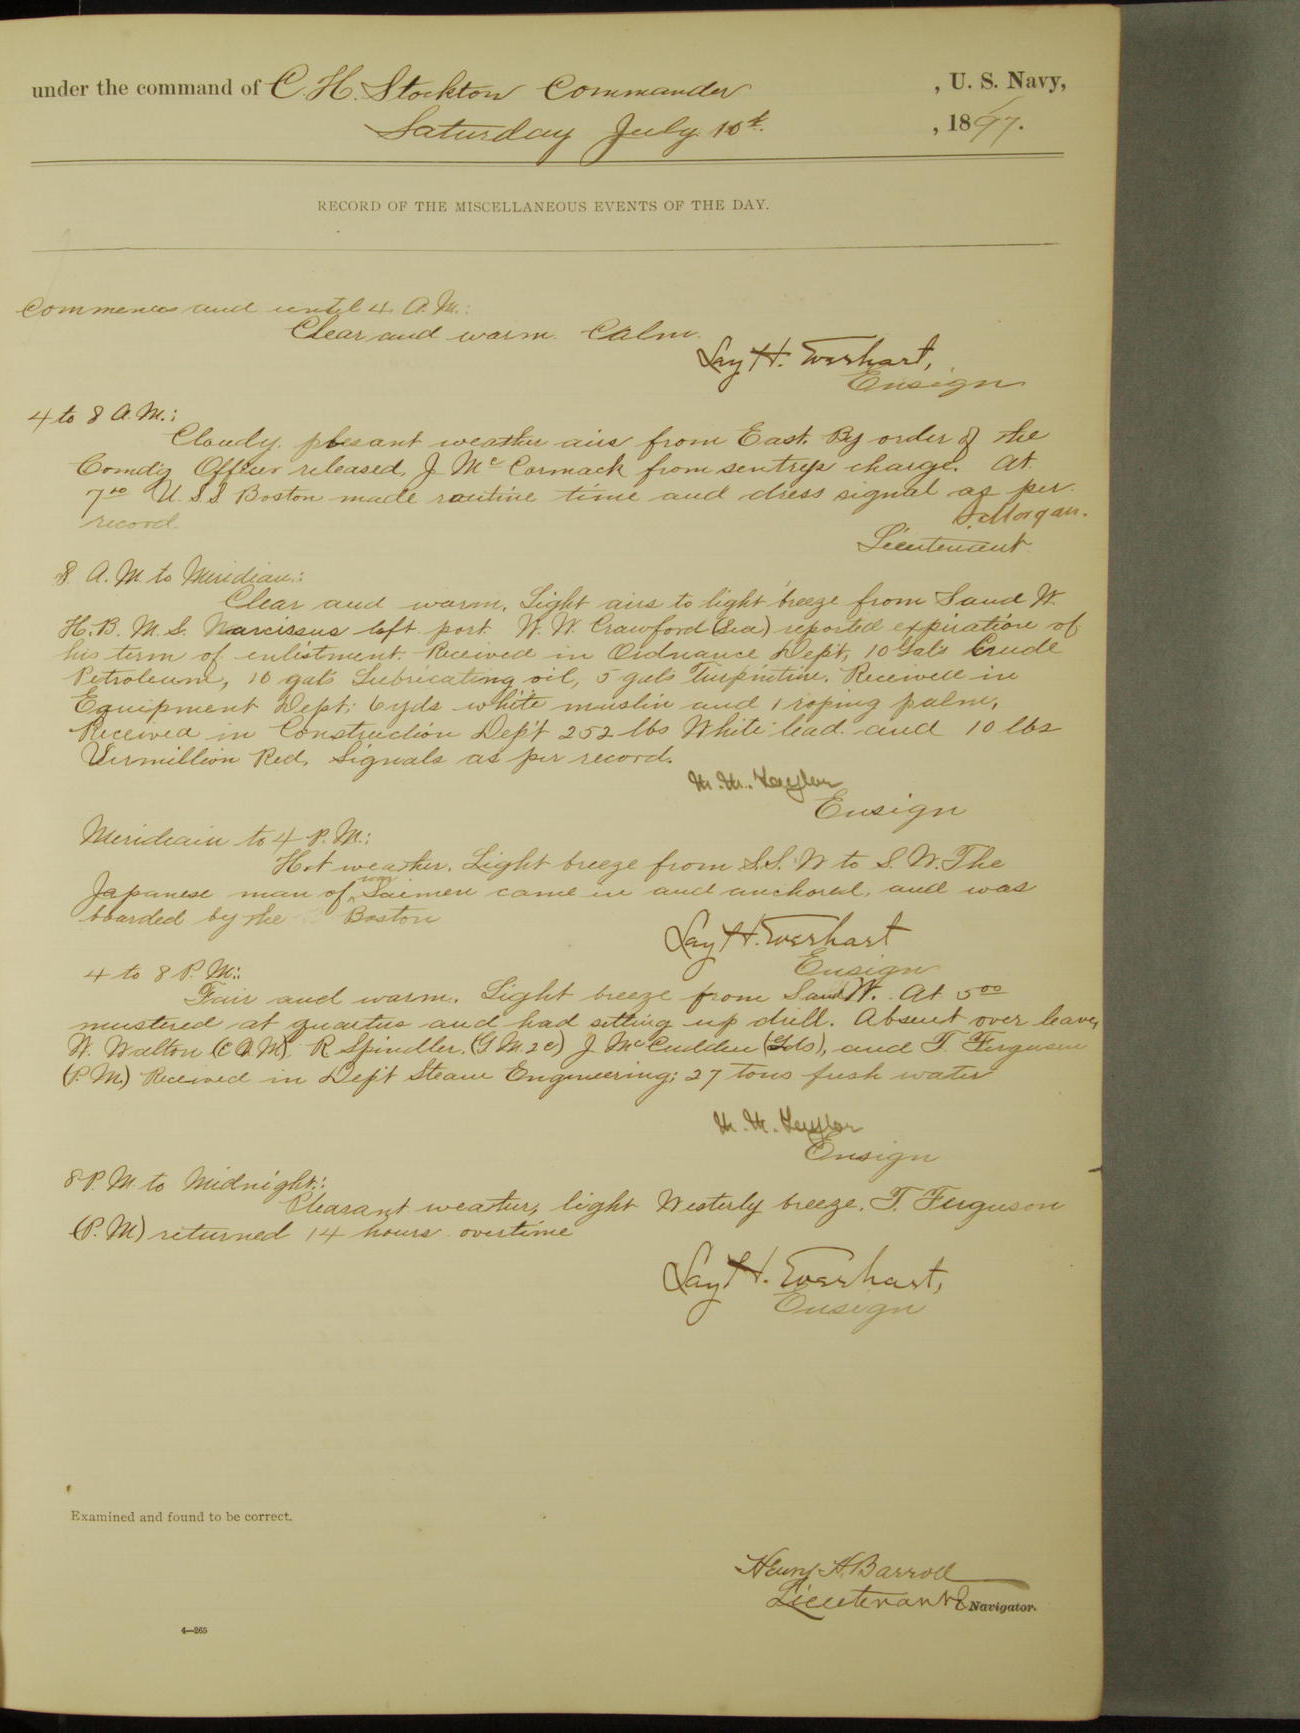 under the command of C. H. Stockton Commander , U. S. Navy,
Saturday July 10th. , 1897.
RECORD OF THE MISCELLANEOUS EVENTS OF THE DAY.
Commences and until 4 A.M.:
Clear and warm. Calm.
Lay H. Everhart,
Ensign
4 to 8 A.M.:
Cloudy. plesant weather airs from East. By order of the
Comdg Officer released, J McCormack from sentrys charge. At
7 U.S.S Boston made routine time and dress signal as per
record.
Morgan.
Lieutenant.
8 A.M. to Meridian.:
Clear and warm. Light airs to light breeze from S and W.
H.B.M.S. Narcissus left port. W. W. Crawford (Sea) reported expiration of
his term of enlistment. Received in Ordnance Dept, 10 Gals Crude
Petroleum, 10 gals Lubricating oil, 5 gals Turpintine. Received in
Equipment Dept; 6 yds white muslin and 1 roping palm,
Received in Construction Dept 252 lbs White lead and 10 lbs
Vermillion Red. Signals as per record.
M. M. Taylor
Ensign
Meridiain to 4 P.M.:
Hot weather. Light breeze from S.S.W to S.W. The
Japanese man of war Saimen came in and anchored, and was
boarded by the Boston
Lay H. Everhart
Ensign
4 to 8 P.M.:
Fair and warm. Light breeze from S and W. At 5 00
mustered at quarters and had setting up drill. Absent over leave,
W. Walton (C M), R Spindler, (G M 2c) J McCudden (Lds), and T. Ferguson
(P.M.) Received in Dept Steam Engineering; 27 tons fresh water
M. M. Taylor
Ensign
8 P.M. to Midnight.:
Pleasant weather, light Westerly breeze. T. Ferguson
(P.M) returned 14 hours overtime
Lay H. Everhart,
Ensign
Examined and found to be correct.
Henry H. Barroll
Lieutenant & Navigator.
4—265